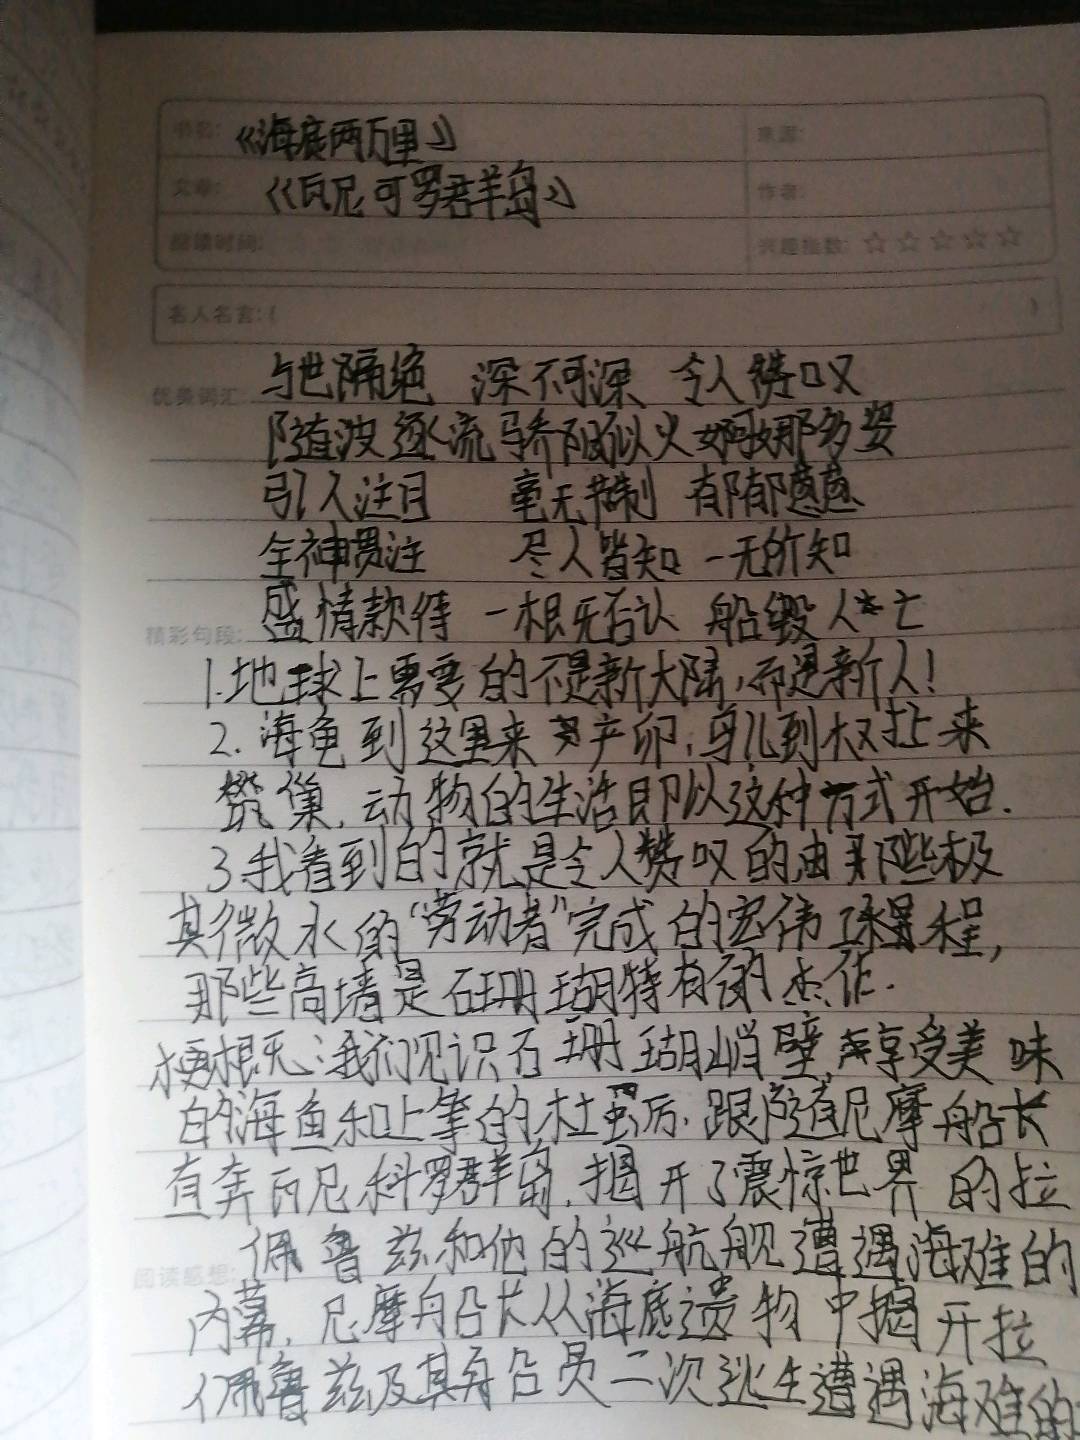 书名: 《海底两万里》 来源:
文章: 《瓦尼可罗群岛》 作者:
品读时间: 兴趣指数: ☆☆☆☆☆
名人名言: ( )
优美词汇: 与世隔绝 深不可深 令人赞叹
随波逐流 骄阳似火 婀娜多姿
引人注目 毫无节制 郁郁葱葱
全神贯注 尽人皆知 一无所知
盛情款待 一根无否认 船毁人亡
精彩句段:
1.地球上需要的不是新大陆,而是新人!
2.海龟到这里来产卵,鸟儿到权扯来
筑巢,动物的生活即以这种方式开始.
3.我看到的就是令人赞叹的,由那些极
其微水的“劳动者”完成的宏伟工程,
那些高墙是石珊瑚特有的杰作.
梗概:我们见识石珊瑚峭壁,享受美味
的海鱼和上等的牡蛎,跟随尼摩船长
直奔瓦尼科罗群岛,揭开了震惊世界的拉
佩鲁兹和他的巡航舰遭遇海难的
阅读感想:
内幕,尼摩船长从海底遗物中揭开拉
佩鲁兹及其船员二次逃生遭遇海难的